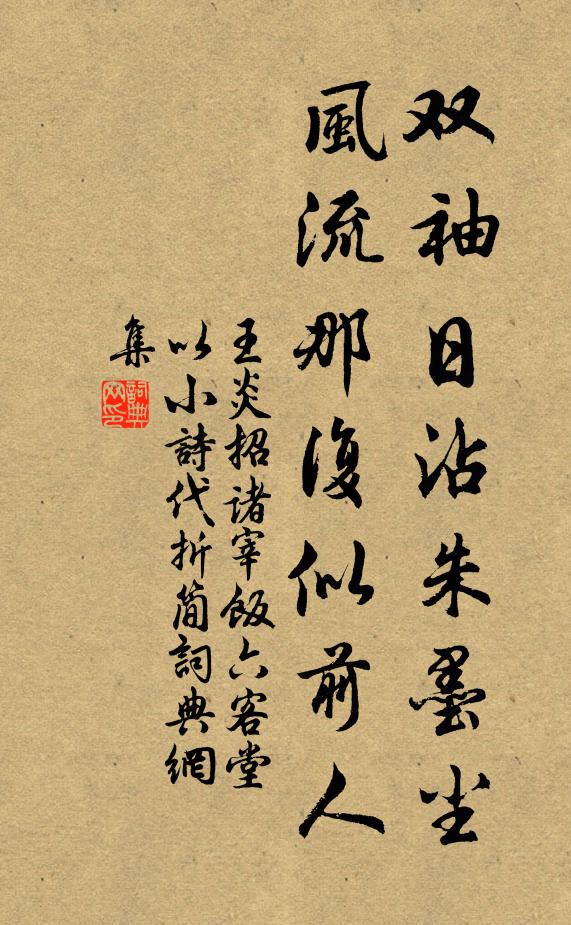 双袖日沾朱墨尘
風流那復似前人
王炎招诸宰饭六客堂
以小詩代折简詞典網
集
詞典网印